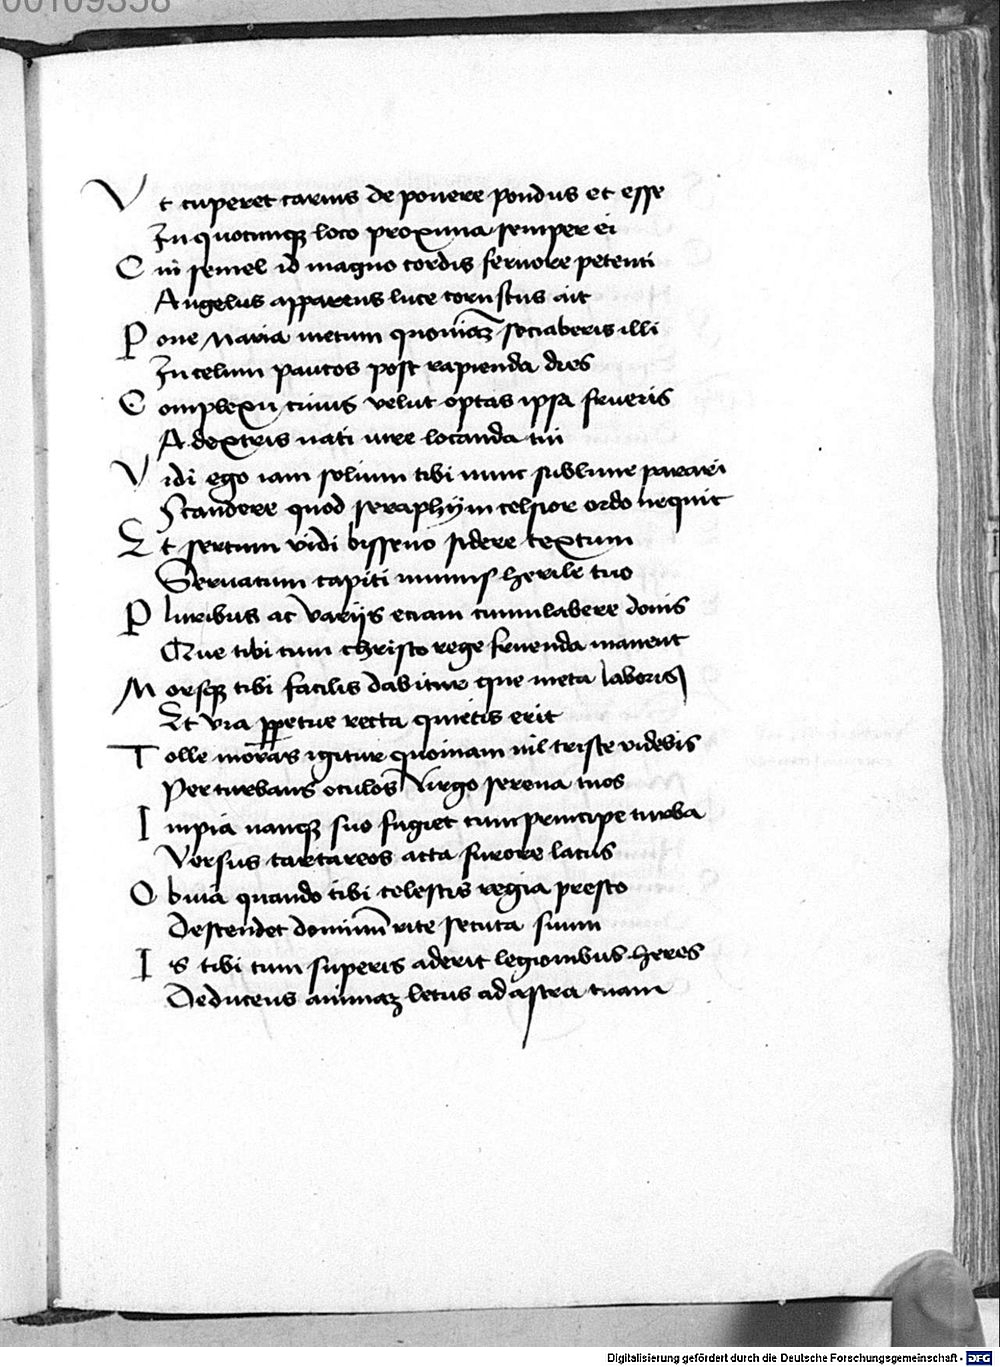 00109358
Vt cuperet carnis deponere pondus et esse
In quocunqꝫ loco proxima semper ei
Cui semel id magno cordis feruore petenti
Angelus apparens luce coruscus ait
Pone Maria metum quoniaꝫ sociaberis illi
In celum paucos post rapienda dies
Complexu cuius velut optas ipsa frueris
A dextris nati iure locanda tui
Vidi ego iam solium tibi nunc sublime parari
Scandere quod seraphÿm celsior ordo nequit
Et sertum vidi bisseno sidere textum
Seruatum capiti munus herile tuo
Pluribus ac varijs eciam cumulabere donis
Que tibi cum christo rege fruenda manent
Morsqꝫ tibi facilis dabitur que meta laboris
Et via ꝑpetue recta quietis erit
Tolle moras igitur quoniam nil triste videbis
Perturbans oculos Virgo serena tuos
Impia nanqꝫ suo fugiet cum principe turba
Versus tartareos acta furore lacus
Obuia quando tibi celestis regia presto
Descendet dominū rite secuta suum
Is tibi cum superis aderit legionibus heres
Deducens animaꝫ letus ad astra tuam
Digitalisierung gefördert durch die Deutsche Forschungsgemeinschaft - DFG